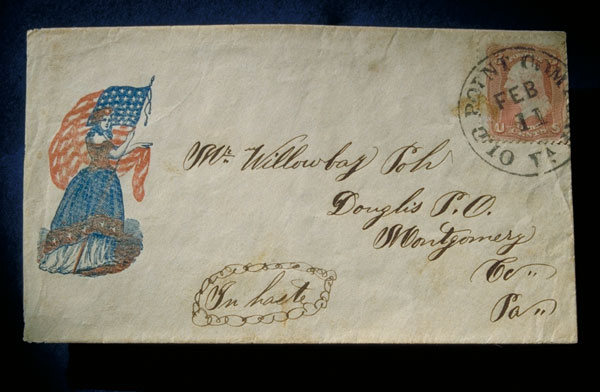 OLD POINT COM
FEB
11
VA
U
Mr. Willowbay Poh
Douglis P.O.
Montgomery
Co,,
Pa,,
In haste